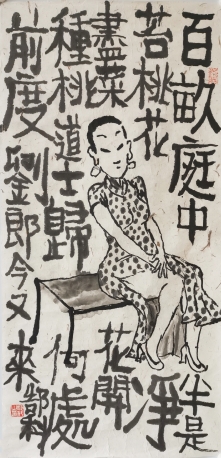 百畝庭中半是
苔桃花淨
盡菜花開
種桃道士歸何處
前度劉郎今又來